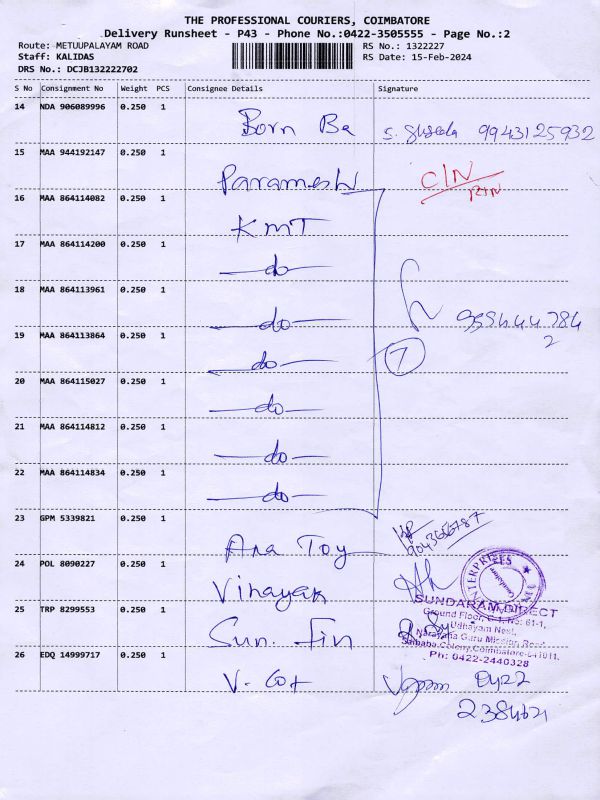 THE PROFESSIONAL COURIERS, COIMBATORE
Delivery Runsheet - P43 - Phone No.:0422-3505555 - Page No.:2
Route: METUUPALAYAM ROAD
RS No.: 1322227
Staff: KALIDAS
RS Date: 15-Feb-2024
DRS No.: DCJB132222702
S No Consignment No Weight PCS Consignee Details Signature
14 NDA 906089996 0.250 1
Born Ba 9943125932
15 MAA 944192147 0.250 1
Paramesh C/N
16 MAA 864114082 0.250 1
KMT
17 MAA 864114200 0.250 1
do
18 MAA 864113961 0.250 1
do
19 MAA 864113864 0.250 1
do 7
20 MAA 864115027 0.250 1
do
21 MAA 864114812 0.250 1
do
22 MAA 864114834 0.250 1
do
23 GPM 5339821 0.250 1
Ana Toy
24 POL 8090227 0.250 1
Vinayak
ENTERPRIZES
Coimbatore
SUNDARAM DIRECT
25 TRP 8299553 0.250 1
Ground Floor, No: 61-1,
Udhayam Nest,
Sun. Fin
Narayana Guru Mission Road
Saibaba Colony, Coimbatore-641011.
26 EDQ 14999717 0.250 1
Ph: 0422-2440328
V. Cot 0422
2384621